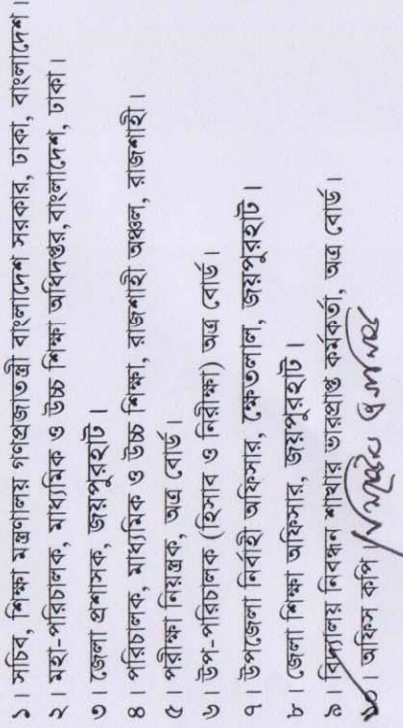 ১। সচিব, শিক্ষা মন্ত্রণালয় গণপ্রজাতন্ত্রী বাংলাদেশ সরকার, ঢাকা, বাংলাদেশ।
২। মহা-পরিচালক, মাধ্যমিক ও উচ্চ শিক্ষা অধিদপ্তর,বাংলাদেশ, ঢাকা।
৩। জেলা প্রশাসক, জয়পুরহাট।
৪। পরিচালক, মাধ্যমিক ও উচ্চ শিক্ষা, রাজশাহী অঞ্চল, রাজশাহী।
৫। পরীক্ষা নিয়ন্ত্রক, অত্র বোর্ড।
৬। উপ-পরিচালক (হিসাব ও নিরীক্ষা) অত্র বোর্ড।
৭। উপজেলা নির্বাহী অফিসার, ক্ষেতলাল, জয়পুরহাট।
৮। জেলা শিক্ষা অফিসার, জয়পুরহাট।
৯। বিদ্যালয় নিবন্ধন শাখার ভারপ্রাপ্ত কর্মকর্তা, অত্র বোর্ড।
১০। অফিস কপি।